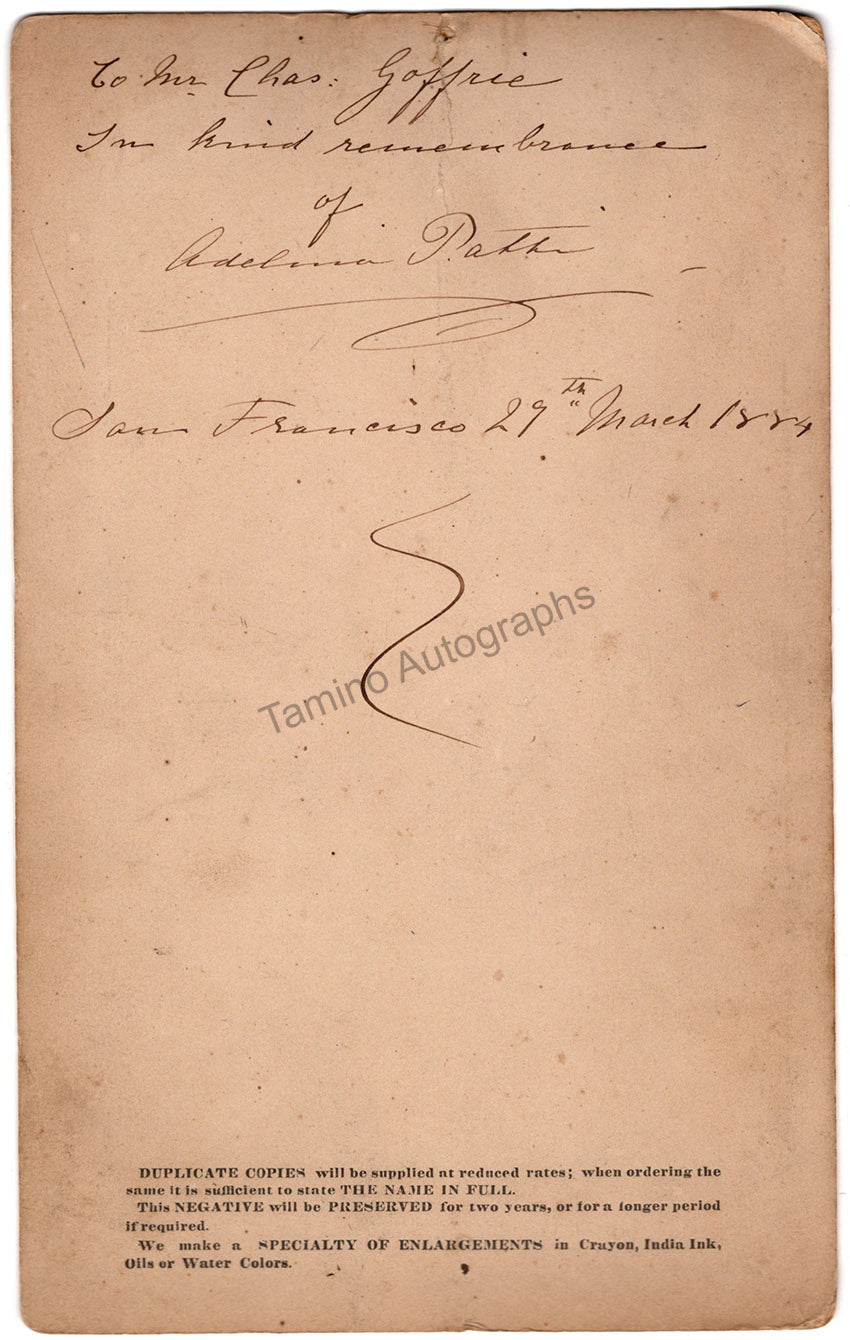 To Mr Chas: Goffrie
In kind remembrance
of
Adelina Patti
San Francisco 29th March 1884
Tamino Autographs
DUPLICATE COPIES will be supplied at reduced rates; when ordering the
same it is sufficient to state THE NAME IN FULL.
This NEGATIVE will be PRESERVED for two years, or for a longer period
if required.
We make a SPECIALTY OF ENLARGEMENTS in Crayon, India Ink,
Oils or Water Colors.